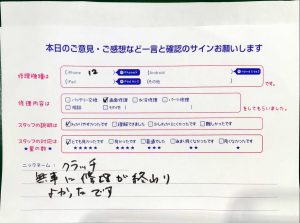 本日のご意見・ご感想など一言と確認のサインお願いします
修理機種は iPhone 12 Android
iPad その他 です。
修理内容は バッテリー交換 ☑画面修理 水没修理 パーツ修理
相談 その他 をしてもらいました。
スタッフの説明は ☑わかりやすかったです 理解できました 少しわかりにくかったです 難しかったです
スタッフの対応は ☑とても良かったです 良かったです 普通でした あまり良くなかったです 良くなかったです
★星の数★ ★★★★★ ★★★★ ★★★ ★★ ★
ニックネーム: クラッチ
無事に修理が終わり
よかったです